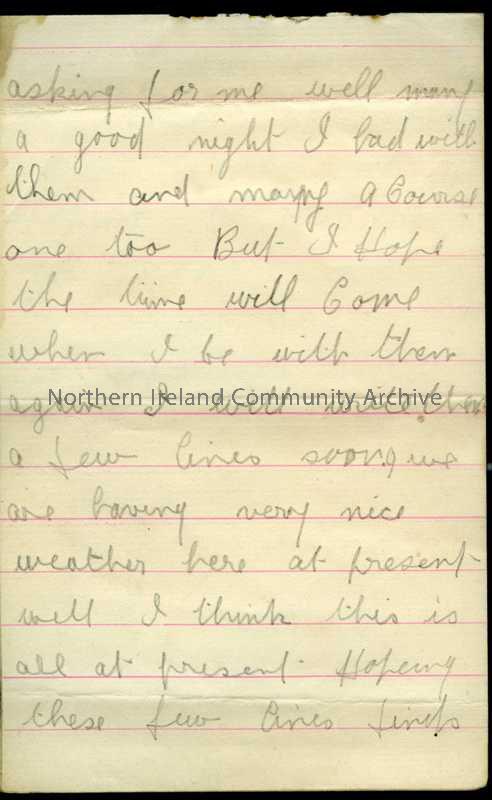 asking for me well many
a good night I had with
them and many a Course
one too But I Hope
the time will Come
when I be with them
again I will write them
Northern Ireland Community Archive
a few lines soong we
are having very nice
weather here at present
well I think this is
all at present Hopeing
these few lines finds